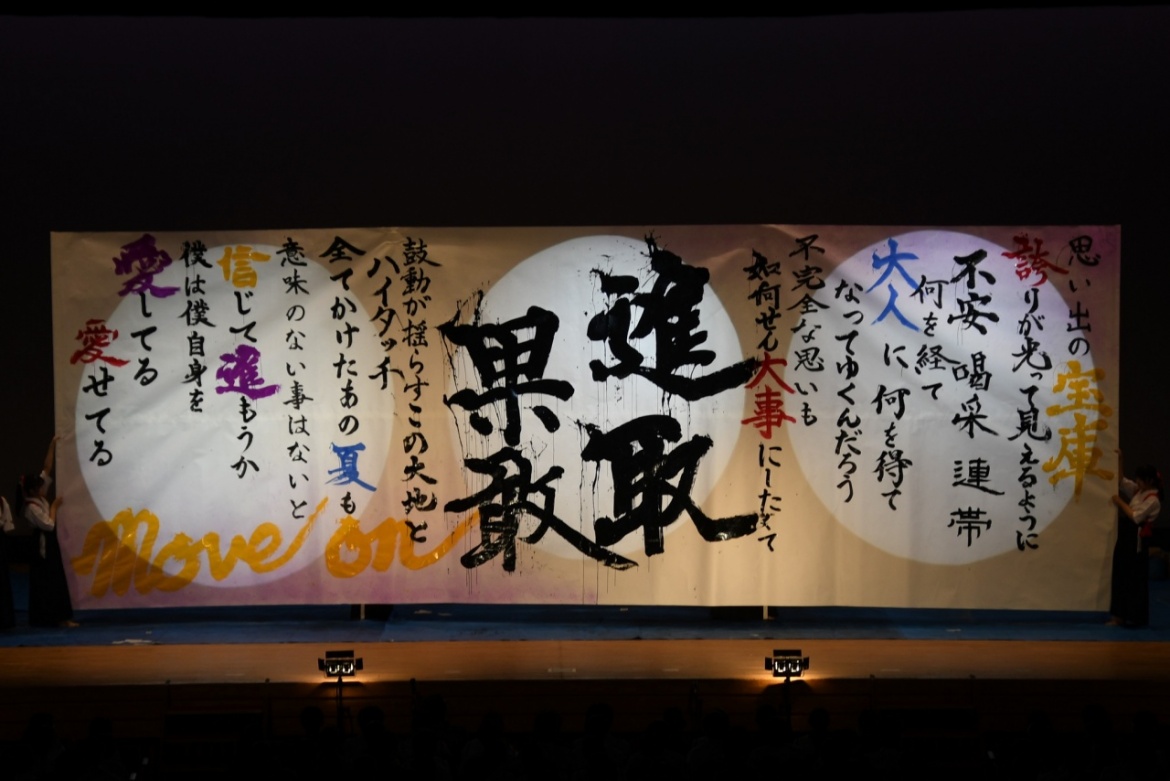 思い出の宝庫
誇りが光って見えるように
不安 喝采 連帯
何を経て
大人に何を得て
なってゆくんだろう
不完全な思いも
如何せん大事にしたくて
進取
果敢
鼓動が揺らすこの大地と
ハイタッチ
全てかけたあの夏も
意味のない事はないと
信じて進もうか
僕は僕自身を
愛してる
愛せてる
Move on